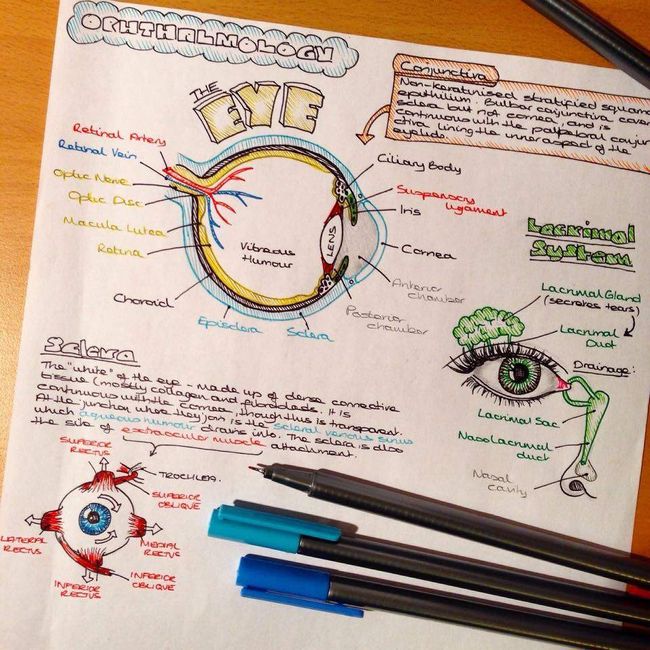 OPHTHALMOLOGY
THE
EYE
Conjunctiva
Non-keratinised stratified squam
epithelium. Bulbar conjunctiva cover
sclera but not cornea, and is
continuous with the palpebral conjun
ctiva, lining the inner aspect of the
eyelids.
Retinal Artery
Retinal Vein
Optic Nerve
Optic Disc
Macula Lutea
Retina
Choroid
Episclera
Sclera
Vitreous
Humour
LENS
Ciliary Body
Suspensory
ligament
Iris
Cornea
Anterior
chamber
Posterior
chamber
Lacrimal
System
Lacrimal Gland
(secretes tears)
Lacrimal
Duct
Drainage:
Lacrimal Sac
Nasolacrimal
duct
Nasal
cavity
Sclera
The "white" of the eye - made up of dense connective
tissue (mostly collagen and fibroblasts. It is
continuous with the cornea, though this is transparent.
At the junction where they join is the scleral venous sinus
which aqueous humour drains into. The sclera is also
the site of extraocular muscle attachment.
SUPERIOR
RECTUS
TROCHLEA.
SUPERIOR
OBLIQUE
LATERAL
RECTUS
MEDIAL
RECTUS
INFERIOR
RECTUS
INFERIOR
OBLIQUE